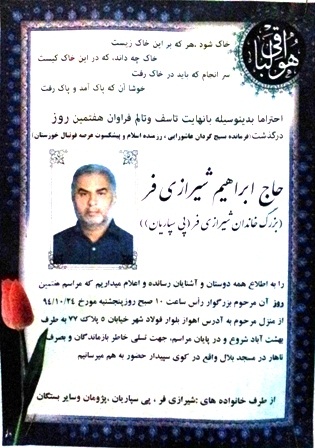 هوالباقی
خاک شود ،هر که بر این خاک زیست
خاک چه داند، که در این خاک کیست
سر انجام که باید در خاک رفت
خوشا آن که پاک آمد و پاک رفت
احتراما بدینوسیله بانهایت تاسف وتالم فراوان هفتمین روز
درگذشت: (فرمانده بسیج گردان عاشورایی ، رزمنده اسلام و پیشکسوت عرصه فوتبال خوزستان)
حاج ابراهیم شیرازی فر
(بزرگ خاندان شیرازی فر(پی سپاریان))
را به اطلاع همه دوستان و آشنایان رسانده و اعلام میداریم که مراسم هفتمین
روز آن مرحوم بزرگوار رأس ساعت ۱۰ صبح روزپنجشنبه مورخ ۹۴/۱۰/۲۴
از منزل مرحوم به آدرس اهواز بلوار فولاد شهر خیابان ۵ پلاک ۷۷ به طرف
بهشت آباد شروع و در پایان مراسم، جهت تسلی خاطر بازماندگان و بصرف
ناهار در مسجد بلال واقع در کوی سپیدار حضور به هم میرسانیم
از طرف خانواده های :شیرازی فر ، پی سپاریان ،پژومان وسایر بستگان